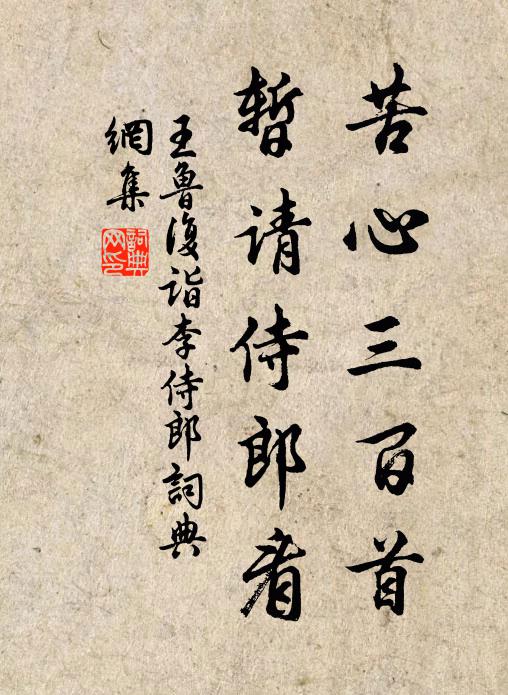 苦心三百首
暫请侍郎看
王魯復诣李侍郎詞典
網集
詞典网印